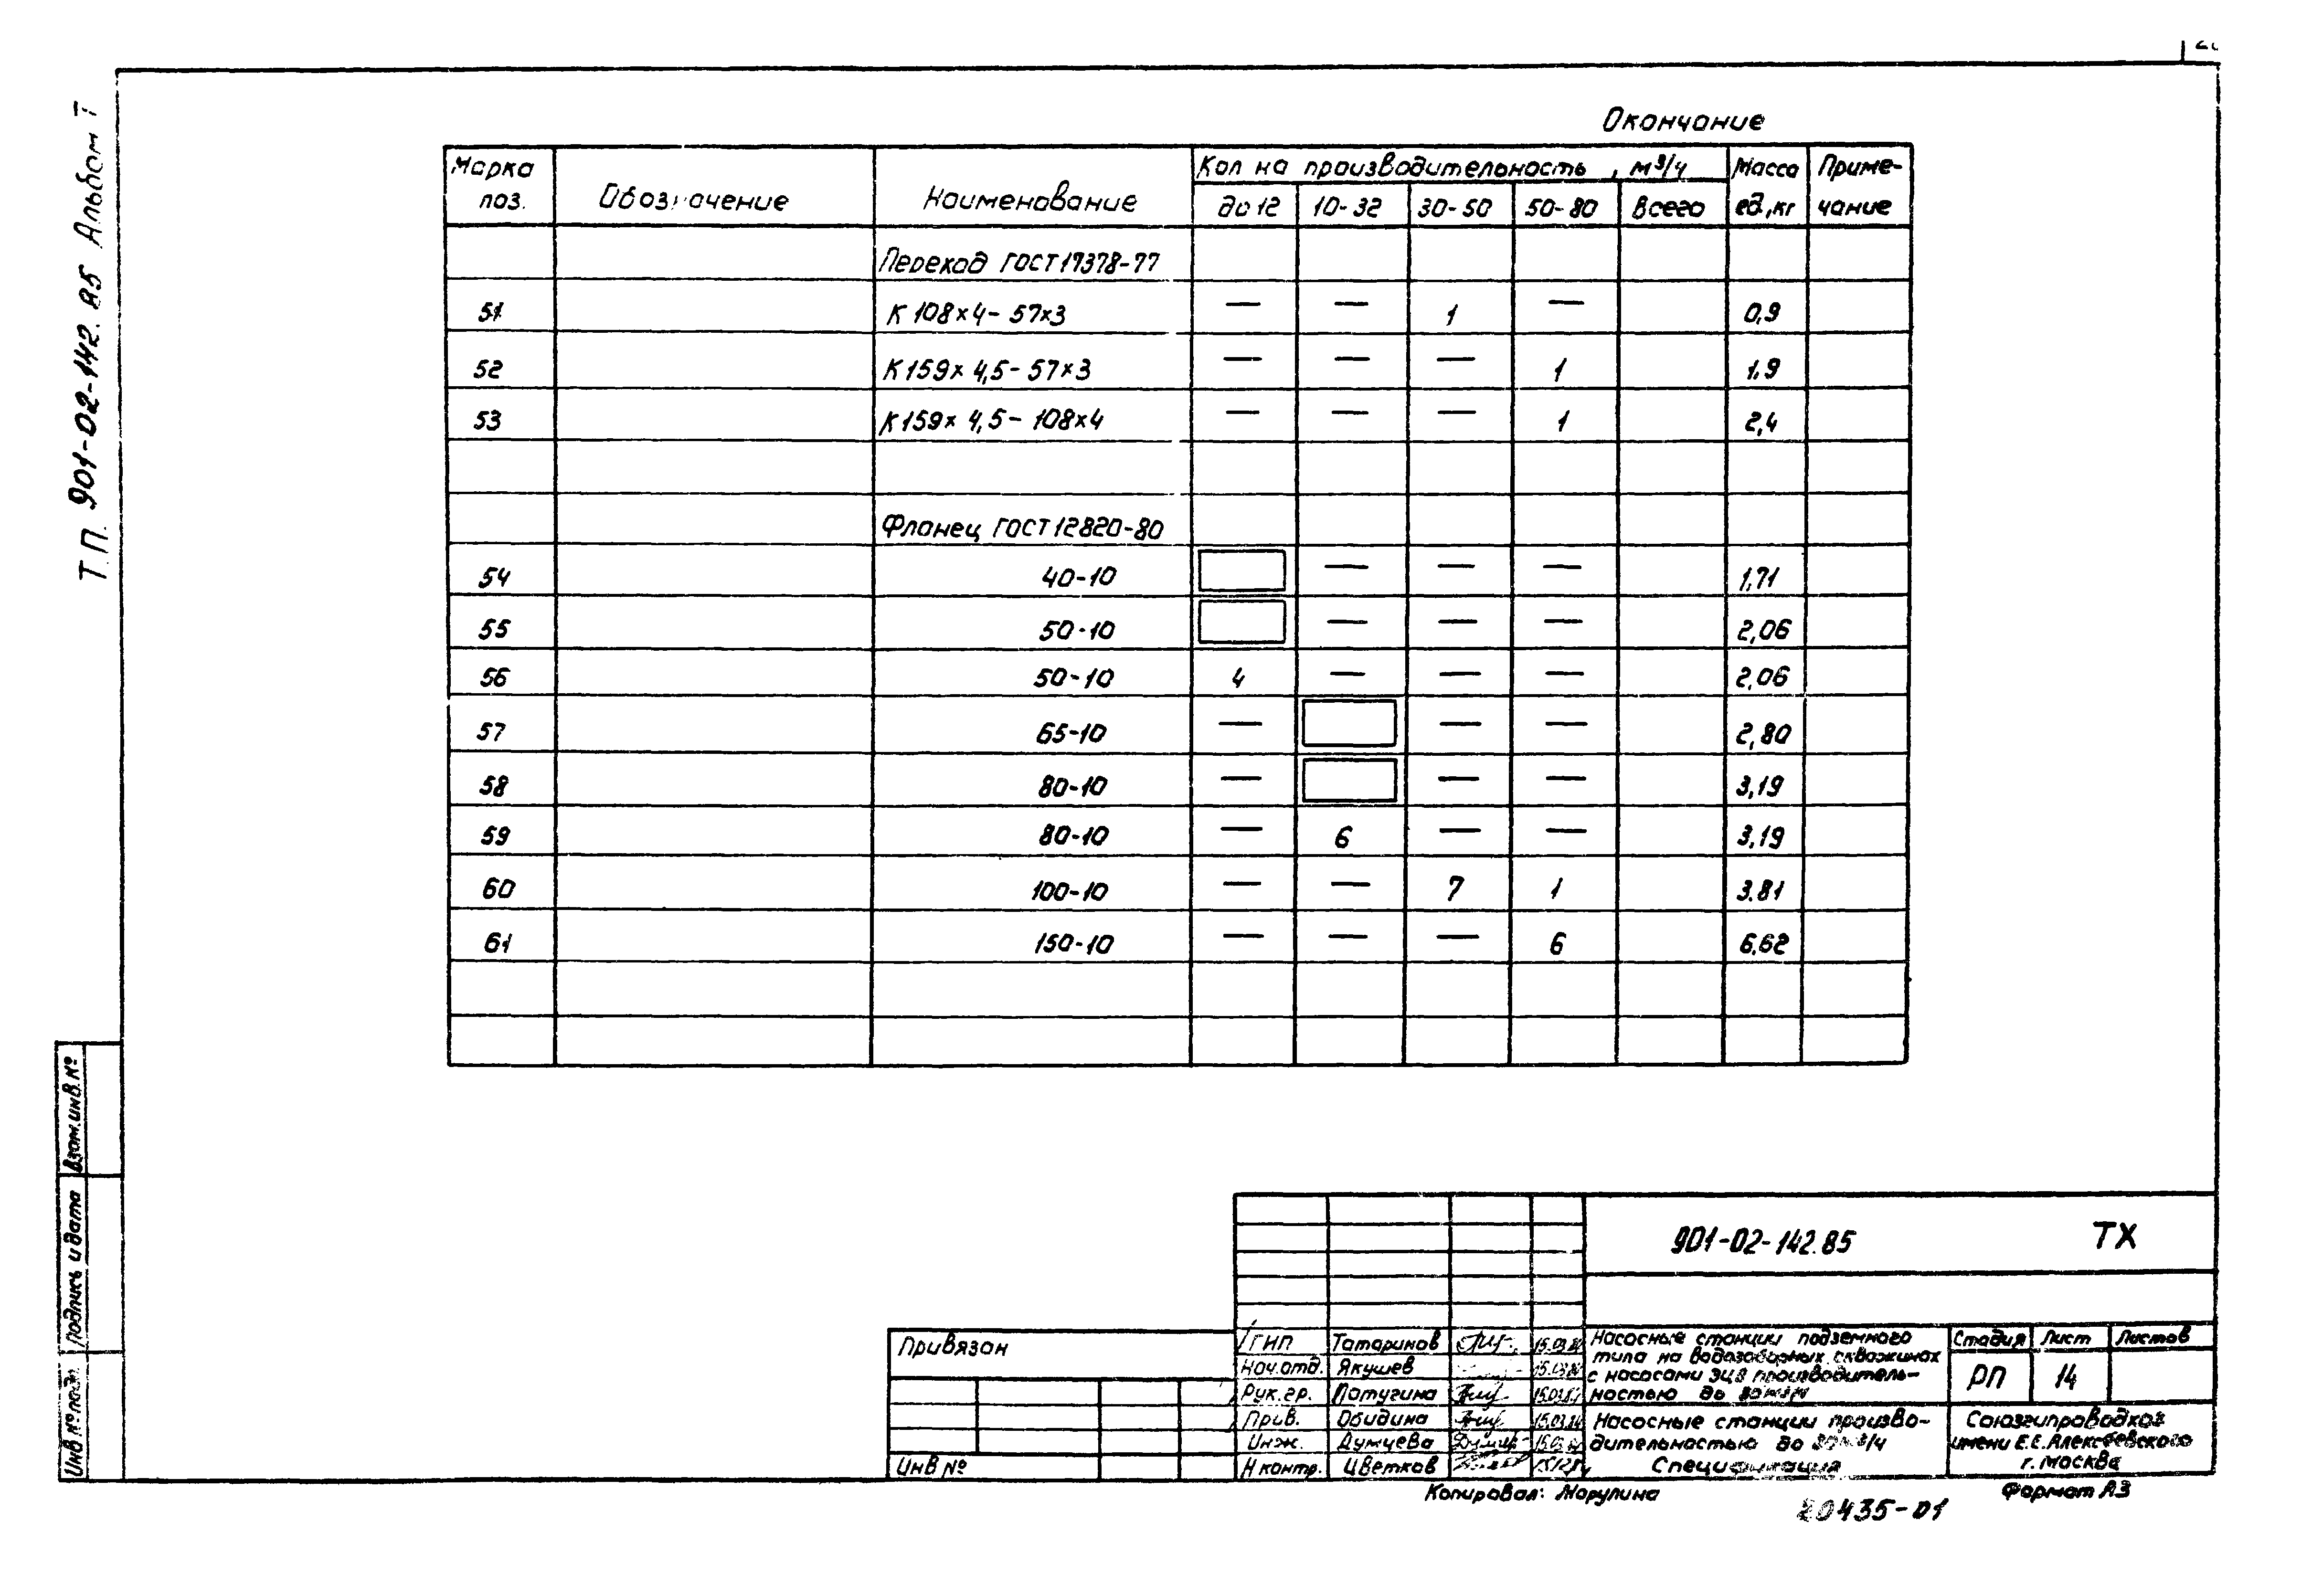 Т.П. 901-02-142.85 Альбом I
Окончание
Марка поз. Обозначение Наименование Кол на производительность, м³/ч Масса ед,кг Примечание
до 12 10-32 30-50 50-80 Всего
Переход ГОСТ 17378-77
51 К 108×4-57×3 — — 1 — 0,9
52 К 159×4,5-57×3 — — — 1 1,9
53 К 159×4,5-108×4 — — — 1 2,4
Фланец ГОСТ 12820-80
54 40-10 — — — 1,71
55 50-10 — — — 2,06
56 50-10 4 — — — 2,06
57 65-10 — — — 2,80
58 80-10 — — — 3,19
59 80-10 — 6 — — 3,19
60 100-10 — — 7 1 3.81
61 150-10 — — — 6 6,62
Взам.инв.№
Подпись и дата
Инв № подл.
901-02-142.85 ТХ
Привязан
Инв №
ГИП Татаринов
Нач.отд. Якушев
Рук.гр. Патугина
Пров. Обидина
Инж. Думчева
Н контр. Цветков
Насосные станции подземного
типа на водозаборных скважинах
с насосами ЭЦВ производитель-
ностью до 80 м3/ч
Стадия Лист Листов
РП 14
Насосные станции произво-
дительностью до 80 м3/ч
Спецификация
Союзгипроводхоз
имени Е.Е.Алексеевского
г. Москва
Копировал: Марулина
Формат А3
20435-01